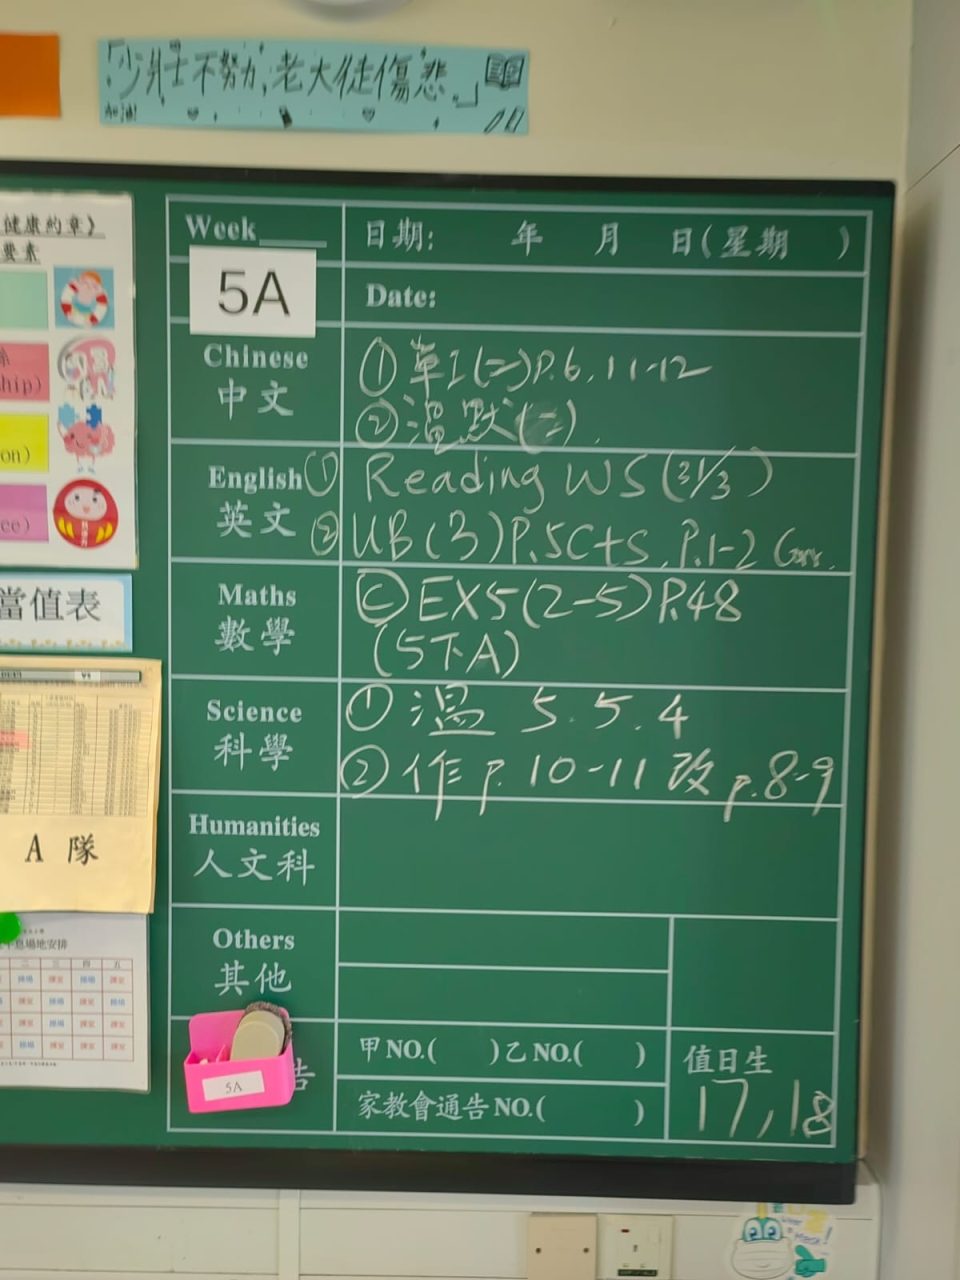 「少壯不努力,老大徒傷悲。」
加油!
健康約章》
要素
係
hip)
on)
ce)
當值表
A 隊
息場地安排
二 三 四 五
Week
日期: 年 月 日(星期 )
5A
Date:
Chinese
中文
① 單I(二)P.6, 11-12
② 溫默(二).
English
英文
① Reading WS (31/3)
② UB(3)P.5C+S, P.1-2 Corr.
Maths
數學
Ⓒ EX5(2-5)P.48
(5下A)
Science
科學
① 溫 5.5.4
② 作 p.10-11 改 p.8-9
Humanities
人文科
Others
其他
告
5A
甲NO.( )乙NO.( )
家教會通告NO.( )
值日生
17, 18